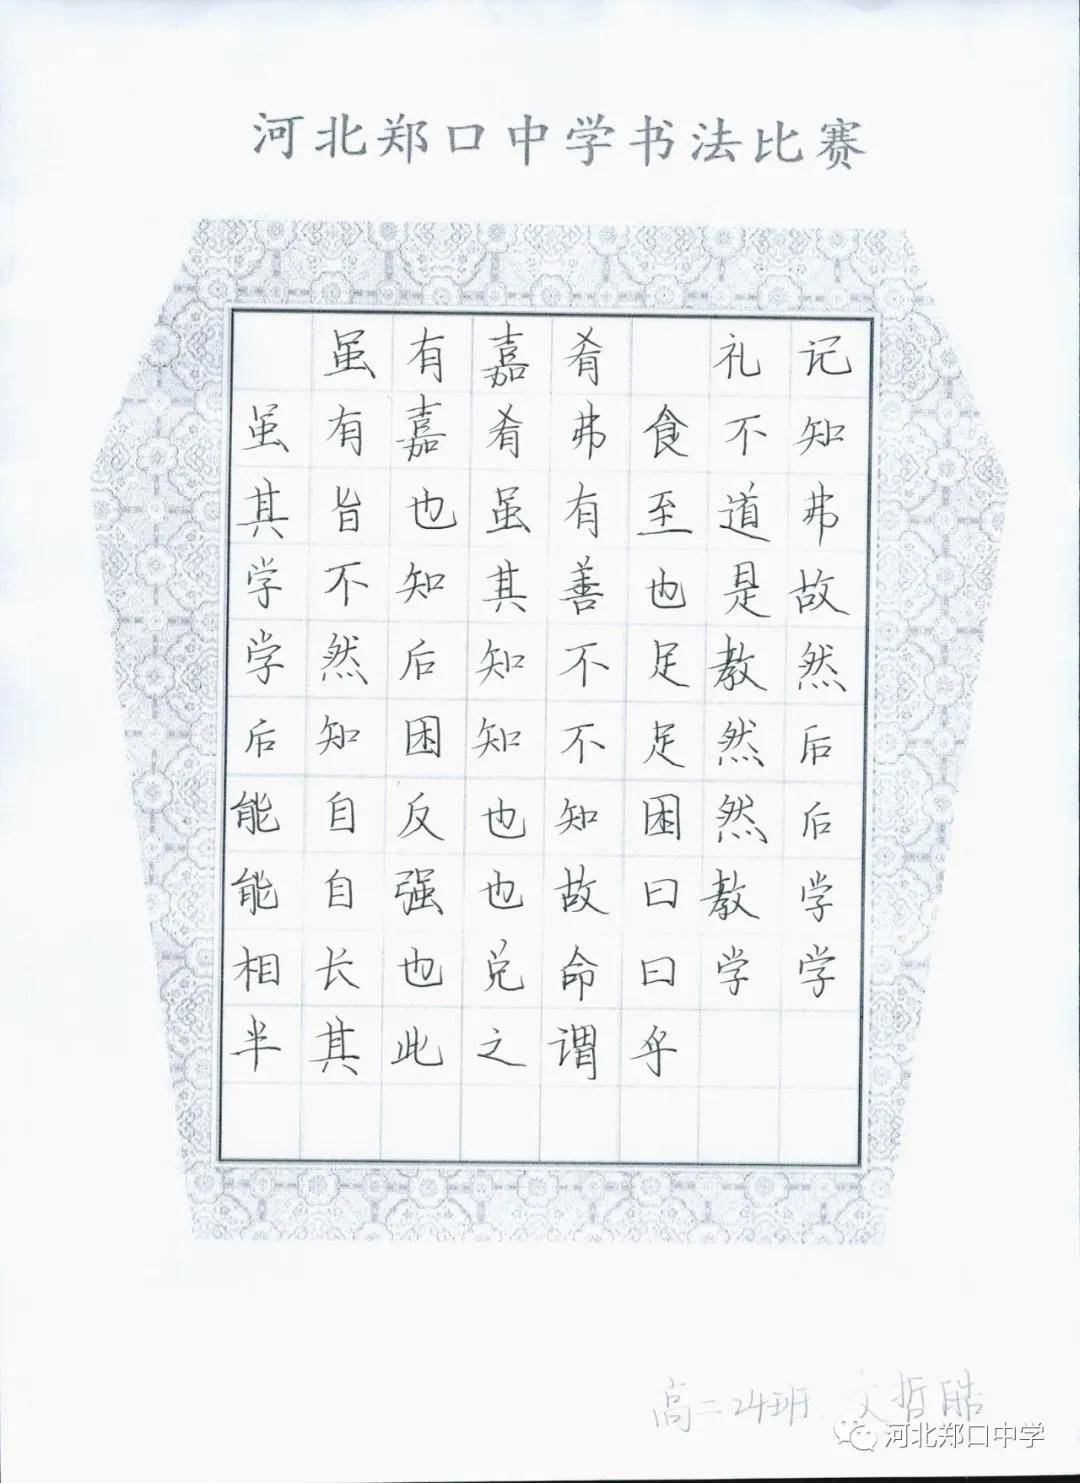 河北郑口中学书法比赛
虽有嘉肴 礼记
虽有嘉肴弗食不知
其旨也虽有至道弗
学不知其善也是故
学然后知不足教然
后知困知不足然后
能自反也知困然后
能自强也故曰教学
相长也兑命曰学学
半其此之谓乎
高二24班 文哲皓
河北郑口中学